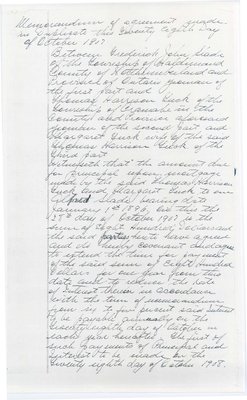 Memorandum of agreement made
in duplicate this twenty eighth day
of October 1907
Between Frederick John Slade
of the Township of Haldimand
County of Northumberland and
Province of Ontario yeoman of
the first part and
Thomas Harrison Cuck of the
Township of Cramahe in the
County and Province aforesaid
yeoman of the second part and
Cuck wife of the said
Thomas Harrison Cuck of the
third part
Witnesseth that the amount due
for Principal upon mortgage
made by the said Thomas Harrison
Cuck and Cuck to one
Slade bearing date
January 1st 1896, but this the
28th day of October 1907 is the
sum of Eight Hundred Dollars and
the said parties have agreed
and do hereby covenant and agree
to extend the time for payment
of the said sum of Eight Hundred
Dollars for one year from this
date and to reduce the Rate
of Interest therein in accordance
with the term of memorandum
from six to five percent said Interest
to be payable annually on the
twenty eighth day of October in
each year hereafter the first of
such payments of Principal and
interest to be made on the
twenty eighth day of October 1908.